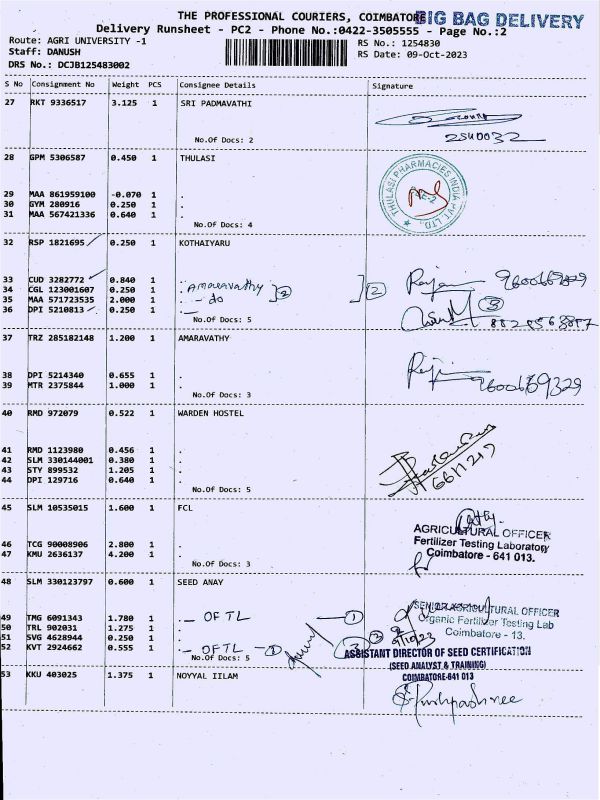 THE PROFESSIONAL COURIERS, COIMBATORE
BIG BAG DELIVERY
Delivery Runsheet - PC2 - Phone No.:0422-3505555 - Page No.:2
Route: AGRI UNIVERSITY -1 RS No.: 1254830
Staff: DANUSH RS Date: 09-Oct-2023
DRS No.: DCJB125483002
S No Consignment No Weight PCS Consignee Details Signature
27 RKT 9336517 3.125 1 SRI PADMAVATHI
No.Of Docs: 2
28 GPM 5306587 0.450 1 THULASI
THULASI PHARMACIES INDIA PVT. LTD.
29 MAA 861959100 -0.070 1 .
30 GYM 280916 0.250 1 .
31 MAA 567421336 0.640 1 .
No.Of Docs: 4
32 RSP 1821695 0.250 1 KOTHAIYARU
33 CUD 3282772 0.840 1 .
34 CGL 123001607 0.250 1 . Amaravathy 2 2
35 MAA 571723535 2.000 1 . - do
36 DPI 5210813 0.250 1 . 3
No.Of Docs: 5
37 TRZ 285182148 1.200 1 AMARAVATHY
38 DPI 5214340 0.655 1 .
39 MTR 2375844 1.000 1 .
No.Of Docs: 3
40 RMD 972079 0.522 1 WARDEN HOSTEL
41 RMD 1123980 0.456 1 .
42 SLM 330144001 0.380 1 .
43 STY 899532 1.205 1 .
44 DPI 129716 0.640 1 .
No.Of Docs: 5
45 SLM 10535015 1.600 1 FCL
AGRICULTURAL OFFICER
Fertilizer Testing Laboratory
Coimbatore - 641 013.
46 TCG 90008906 2.800 1 .
47 KMU 2636137 4.200 1 .
No.Of Docs: 3
48 SLM 330123797 0.600 1 SEED ANAY
SENIOR AGRICULTURAL OFFICER
Organic Fertilizer Testing Lab
Coimbatore - 13.
49 TMG 6091343 1.780 1 . - OFTL 1
50 TRL 902031 1.275 1 .
51 SVG 4628944 0.250 1 .
52 KVT 2924662 0.555 1 . - OFTL 1 3
9/10/23
No.Of Docs: 5
ASSISTANT DIRECTOR OF SEED CERTIFICATION
(SEED ANALYST & TRAINING)
COIMBATORE-641 013
53 KKU 403025 1.375 1 NOYYAL IILAM